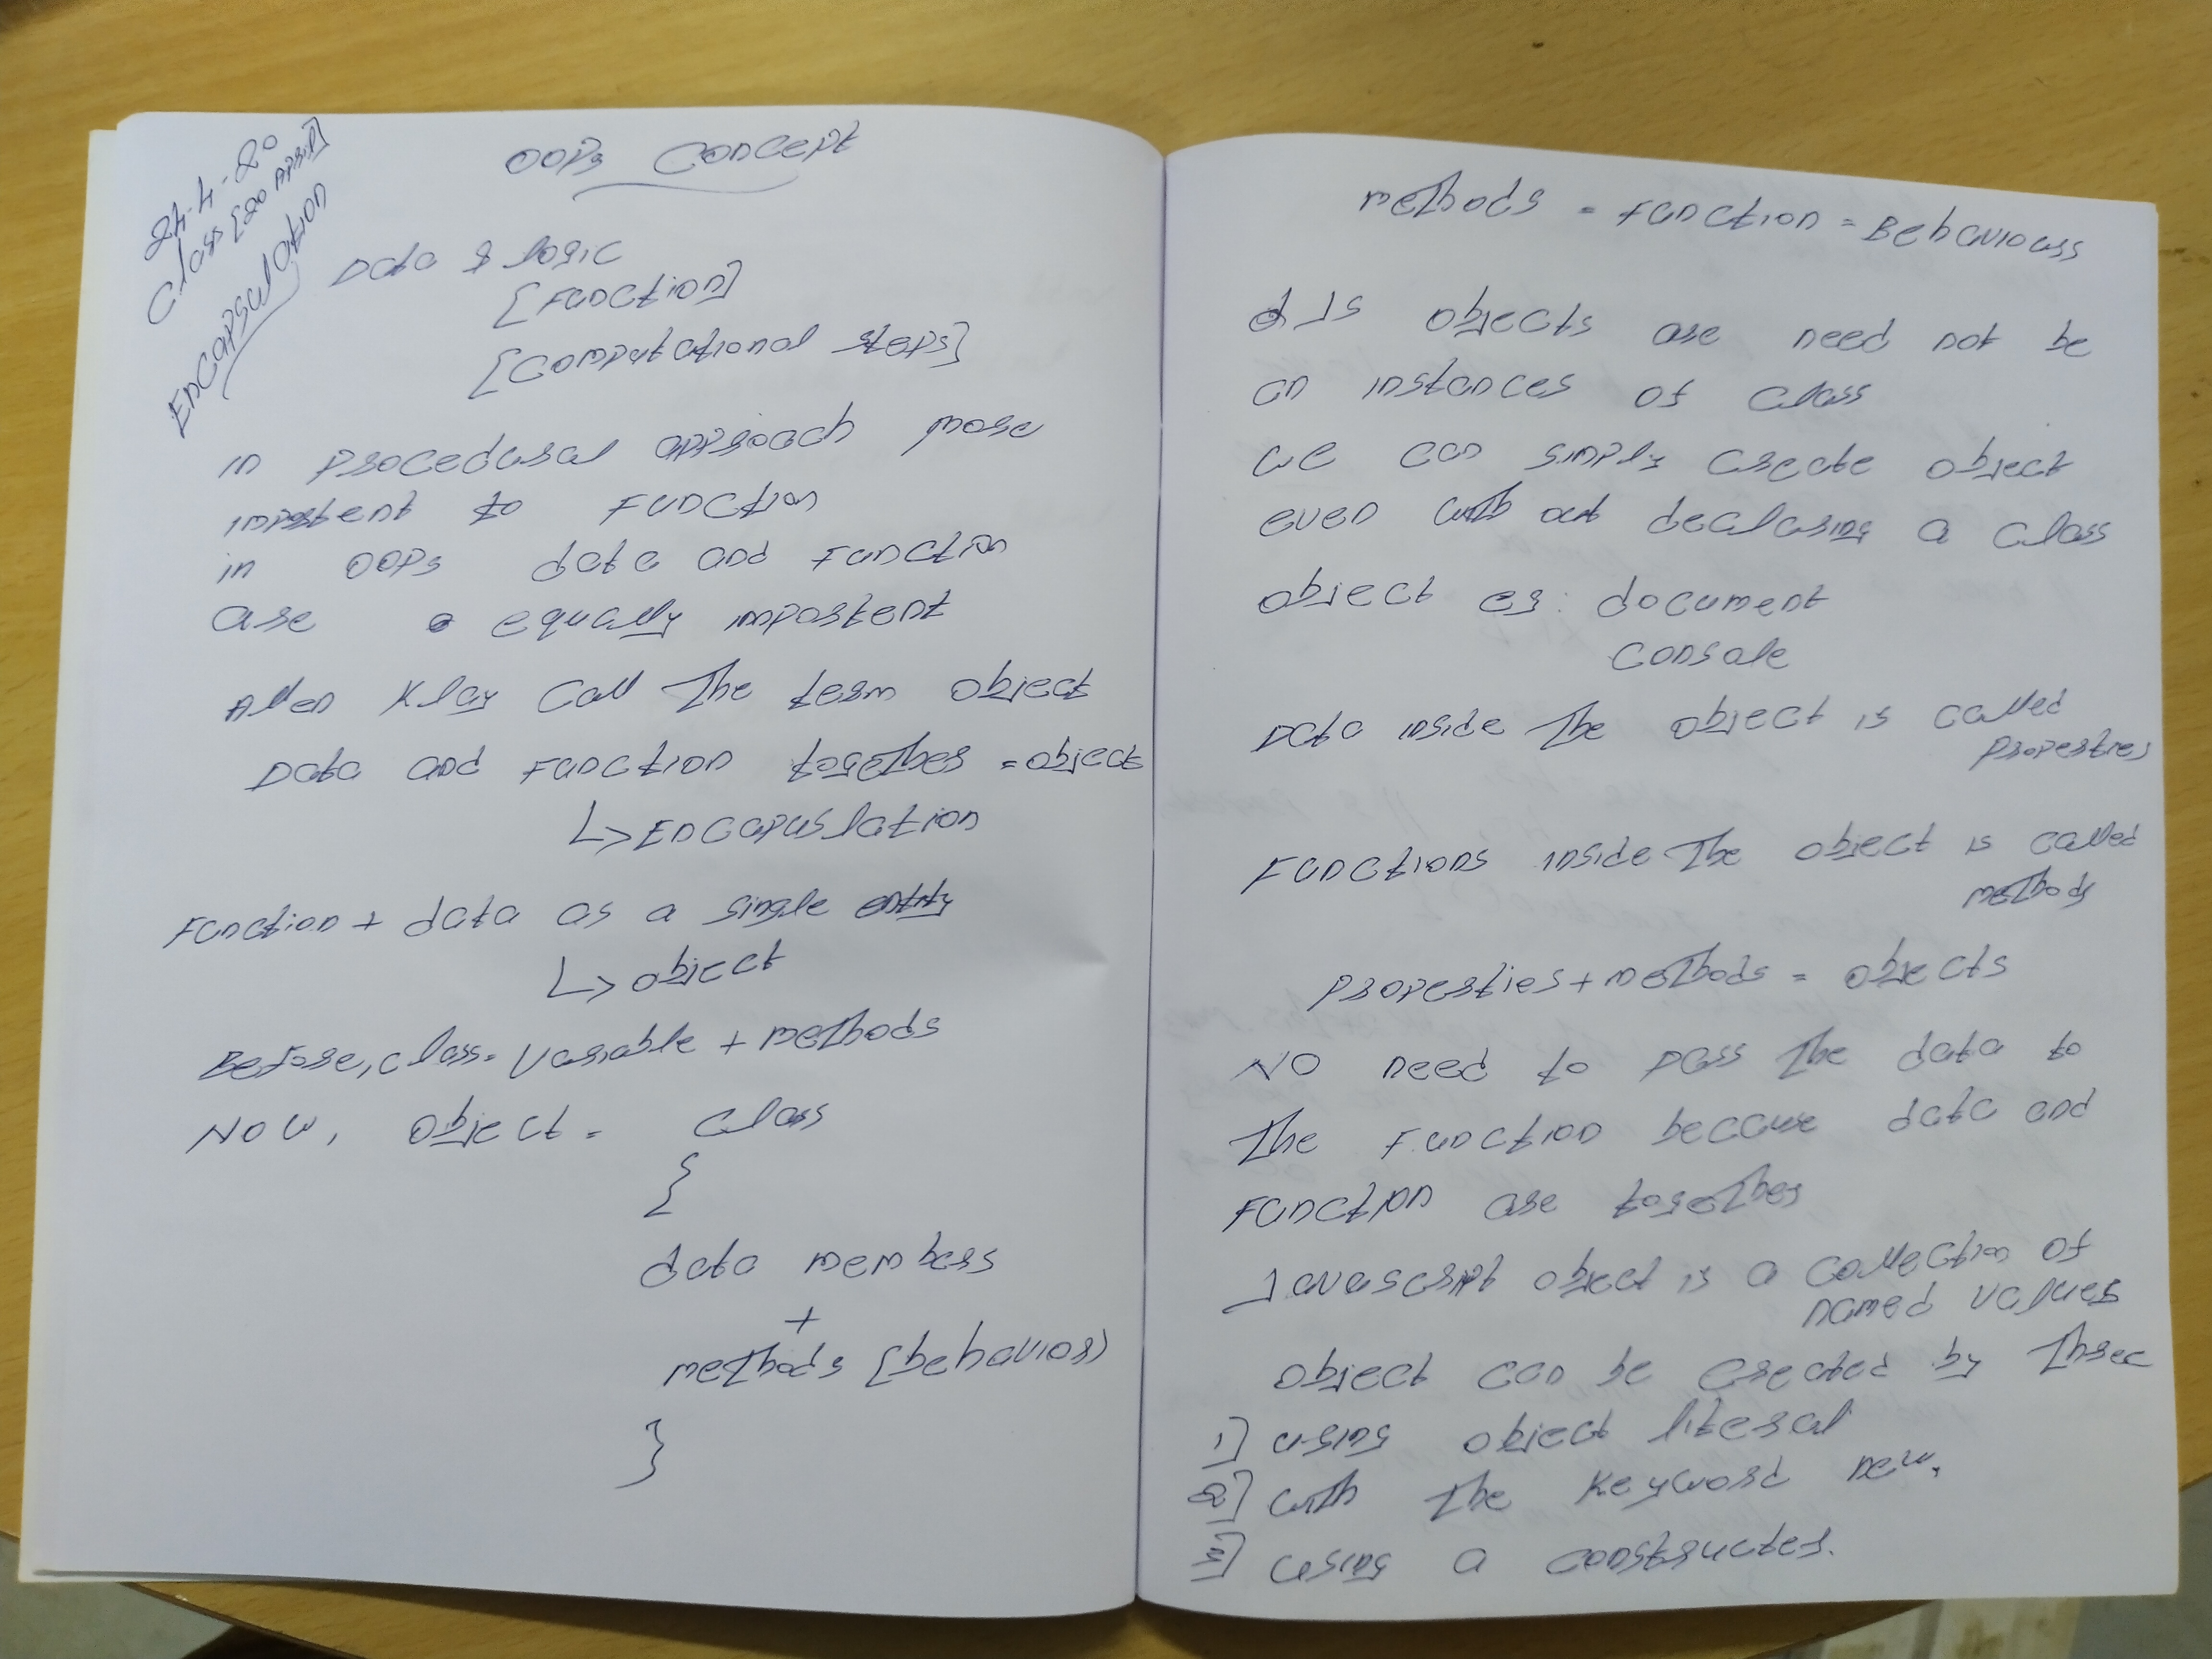 OOPs Concept
24-4-20
Class [20 April]
Encapsulation
Data & logic
[Function]
[Computational steps]
in procedural approach more
important to function
in OOPs data and function
are equally important
Alen Klay call the team object
Data and function together = object
↳> Encapuslation
Function + data as a single entity
↳> object
Before, class = Variable + methods
Now, object = class
{
data members
+
methods [behavior)
}
methods = function = Behaviours
JS objects are need not be
an instances of class
we can simply create object
even with out declaring a class
object eg: document
console
Data inside the object is called
properties
Functions inside the object is called
methody
properties + methods = objects
NO need to pass the data to
the function because data and
function are together
Javascript object is a collection of
named values
object can be created by three
1] using object literal
2] with the keyword new,
3] using a constructer.